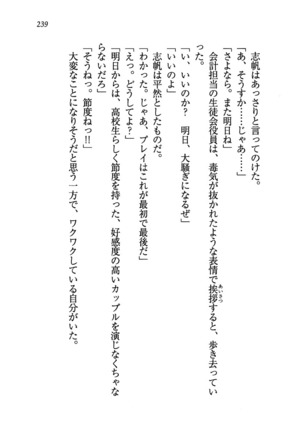 239
志帆はあっさりと言ってのけた。
「あ、そうすか……じゃあ……」
「さよなら。また明日ね」
会計担当の生徒会役員は、毒気が抜かれたような表情で挨拶すると、歩き去ってい
あいさつ
った。
「い、いいのか？　明日、大騒ぎになるぜ」
「いいのよ」
志帆は平然としたものだ。
「わかった。じゃあ、プレイはこれが最初で最後だ」
「えっ。どうしてよ？」
「明日からは、高校生らしく節度を持った、好感度の高いカップルを演じなくちゃな
らないだろ」
「そうねっ。節度ねっ!!」
大変なことになりそうだと思う一方で、ワクワクしている自分がいた。